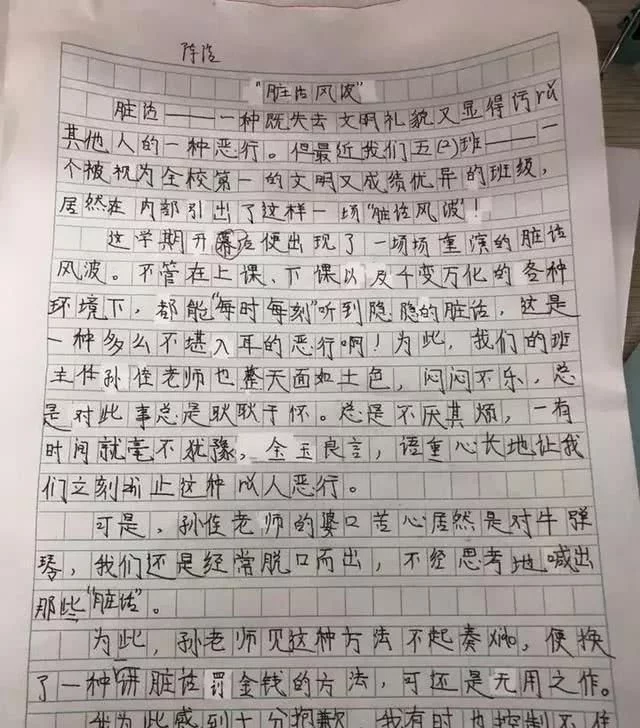 陈浩
"脏话风波"
脏话——一种既失去文明礼貌又显得污以
其他人的一种恶行。但最近我们五(2)班——一
个被视为全校第一的文明又成绩优异的班级，
居然在内部引出了这样一场"脏话风波"!
这学期开幕后便出现了一场场重演的脏话
风波。不管在上课、下课以及千变万化的各种
环境下，都能"每时每刻"听到隐隐的脏话，这是
一种多么不堪入耳的恶行啊!为此，我们的班
主任孙俊老师也整天面如土色，闷闷不乐，总
是对此事总是耿耿于怀。总是不厌其烦，一有
时间就毫不犹豫，金玉良言，语重心长地让我
们立刻停止这种以人恶行。
可是，孙俊老师的婆口苦心居然是对牛弹
琴，我们还是经常脱口而出，不经思考地喊出
那些"脏话"。
为此，孙老师见这种方法不起奏效，便换
了一种讲脏话罚金钱的方法，可还是无用之作。
我为此感到十分抱歉，我有时也控制不住